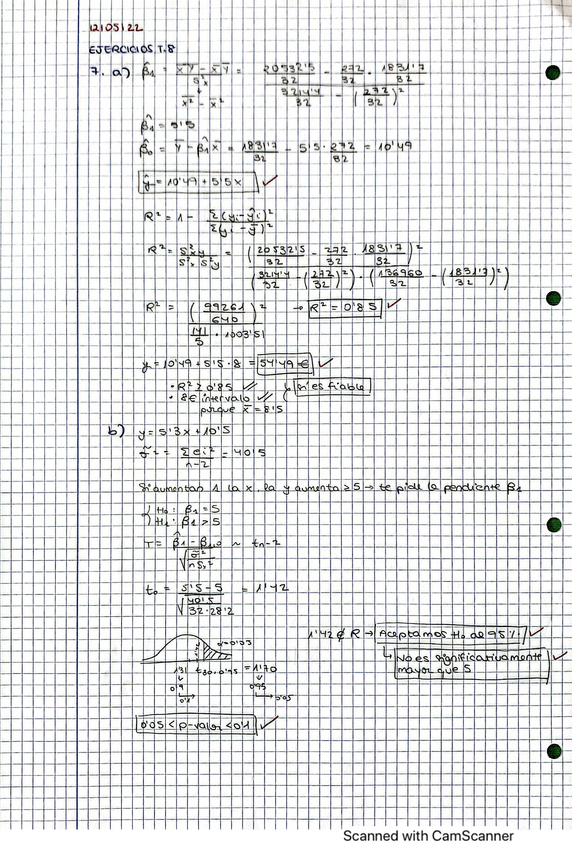 12/05/22
EJERCICIOS T.8
7. a) β̂1 = (x̄ȳ - x̄ ȳ) / S²x = (20532'5/32 - 272/32 · 1831'7/32) / (3214'4/32 - (272/32)²)
x̄² - x̄²
β̂1 = 5'5
β̂0 = ȳ - β̂1 x̄ = 1831'7/32 - 5'5 · 272/32 = 10'49
ŷ = 10'49 + 5'5x ✓
R² = 1 - Σ(yi - ŷi)² / Σ(yi - ȳ)²
R² = S²xy / S²x S²y = (20532'5/32 - 272/32 · 1831'7/32)² / (3214'4/32 - (272/32)²) · (136960/32 - (1831'7/32)²)
R² = (99261/640)² / (141/5 · 1003'51) → R² = 0'85 ✓
y = 10'49 + 5'5 · 8 = 54'49 € ✓
• R² ≥ 0'85 ↳ Sí es fiable
• 8 € intervalo
porque x̄ = 8'5
b) y = 5'3x + 10'5
σ̂² = Σei² / n-2 = 40'5
Si aumentan 1 la x, la y aumenta ≥ 5 → te pide la pendiente β1
{ H0: β1 = 5
{ H1: β1 > 5
T = (β̂1 - β1,0) / √(σ̂² / nSx²) ~ tn-2
t0 = (5'5 - 5) / √(40'5 / 32·28'2) = 1'42
1'42 ∉ R → Aceptamos H0 al 95% ✓
α=0'05
↳ No es significativamente ✓
mayor que 5
1'31 t30·0'95 = 1'70
0'9 0'95
0'1 0'05
0'05 < p-valor < 0'1 ✓
Scanned with CamScanner